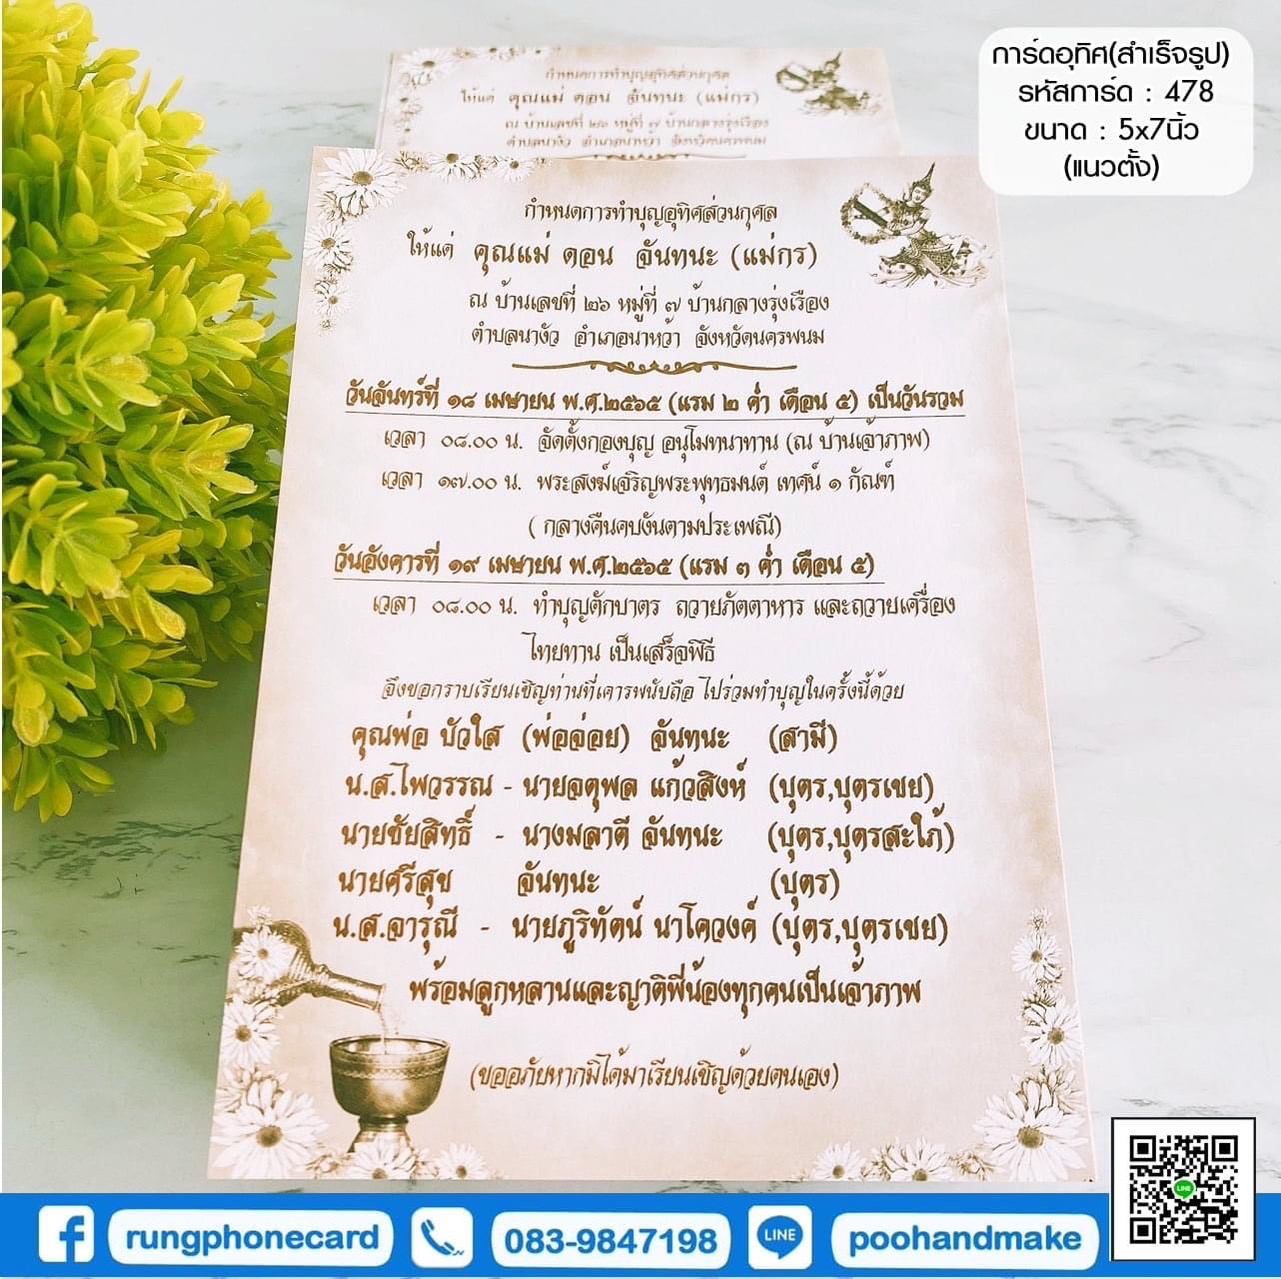 การ์ดอุทิศ(สำเร็จรูป)
รหัสการ์ด : 478
ขนาด : 5x7นิ้ว
(แนวตั้ง)
กำหนดการทำบุญอุทิศส่วนกุศล
ให้แด่ คุณแม่ ดอน จันทนะ (แม่กร)
ณ บ้านเลขที่ ๒๖ หมู่ที่ ๗ บ้านกลางรุ่งเรือง
ตำบลนางัว อำเภอนาหว้า จังหวัดนครพนม
กำหนดการทำบุญอุทิศส่วนกุศล
ให้แด่ คุณแม่ ดอน จันทนะ (แม่กร)
ณ บ้านเลขที่ ๒๖ หมู่ที่ ๗ บ้านกลางรุ่งเรือง
ตำบลนางัว อำเภอนาหว้า จังหวัดนครพนม
วันจันทร์ที่ ๑๘ เมษายน พ.ศ.๒๕๖๕ (แรม ๒ ค่ำ เดือน ๕) เป็นวันรวม
เวลา ๐๘.๐๐ น. จัดตั้งกองบุญ อนุโมทนาทาน (ณ บ้านเจ้าภาพ)
เวลา ๑๗.๐๐ น. พระสงฆ์เจริญพระพุทธมนต์ เทศน์ ๑ กัณฑ์
( กลางคืนคบงันตามประเพณี)
วันอังคารที่ ๑๙ เมษายน พ.ศ.๒๕๖๕ (แรม ๓ ค่ำ เดือน ๕)
เวลา ๐๘.๐๐ น. ทำบุญตักบาตร ถวายภัตตาหาร และถวายเครื่อง
ไทยทาน เป็นเสร็จพิธี
จึงขอกราบเรียนเชิญท่านที่เคารพนับถือ ไปร่วมทำบุญในครั้งนี้ด้วย
คุณพ่อ บัวใส (พ่อจ่อย) จันทนะ (สามี)
น.ส.ไพวรรณ - นายจตุพล แก้วสิงห์ (บุตร,บุตรเขย)
นายชัยสิทธิ์ - นางมลาตี จันทนะ (บุตร,บุตรสะใภ้)
นายศรีสุข จันทนะ (บุตร)
น.ส.จารุณี - นายภูริทัตน์ นาโควงค์ (บุตร,บุตรเขย)
พร้อมลูกหลานและญาติพี่น้องทุกคนเป็นเจ้าภาพ
(ขออภัยหากมิได้มาเรียนเชิญด้วยตนเอง)
rungphonecard
083-9847198
LINE
poohandmake
LINE